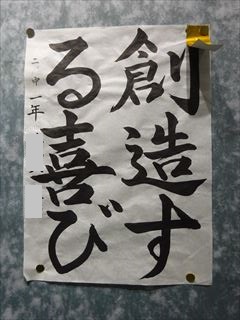 創造す
る喜び
二中一年